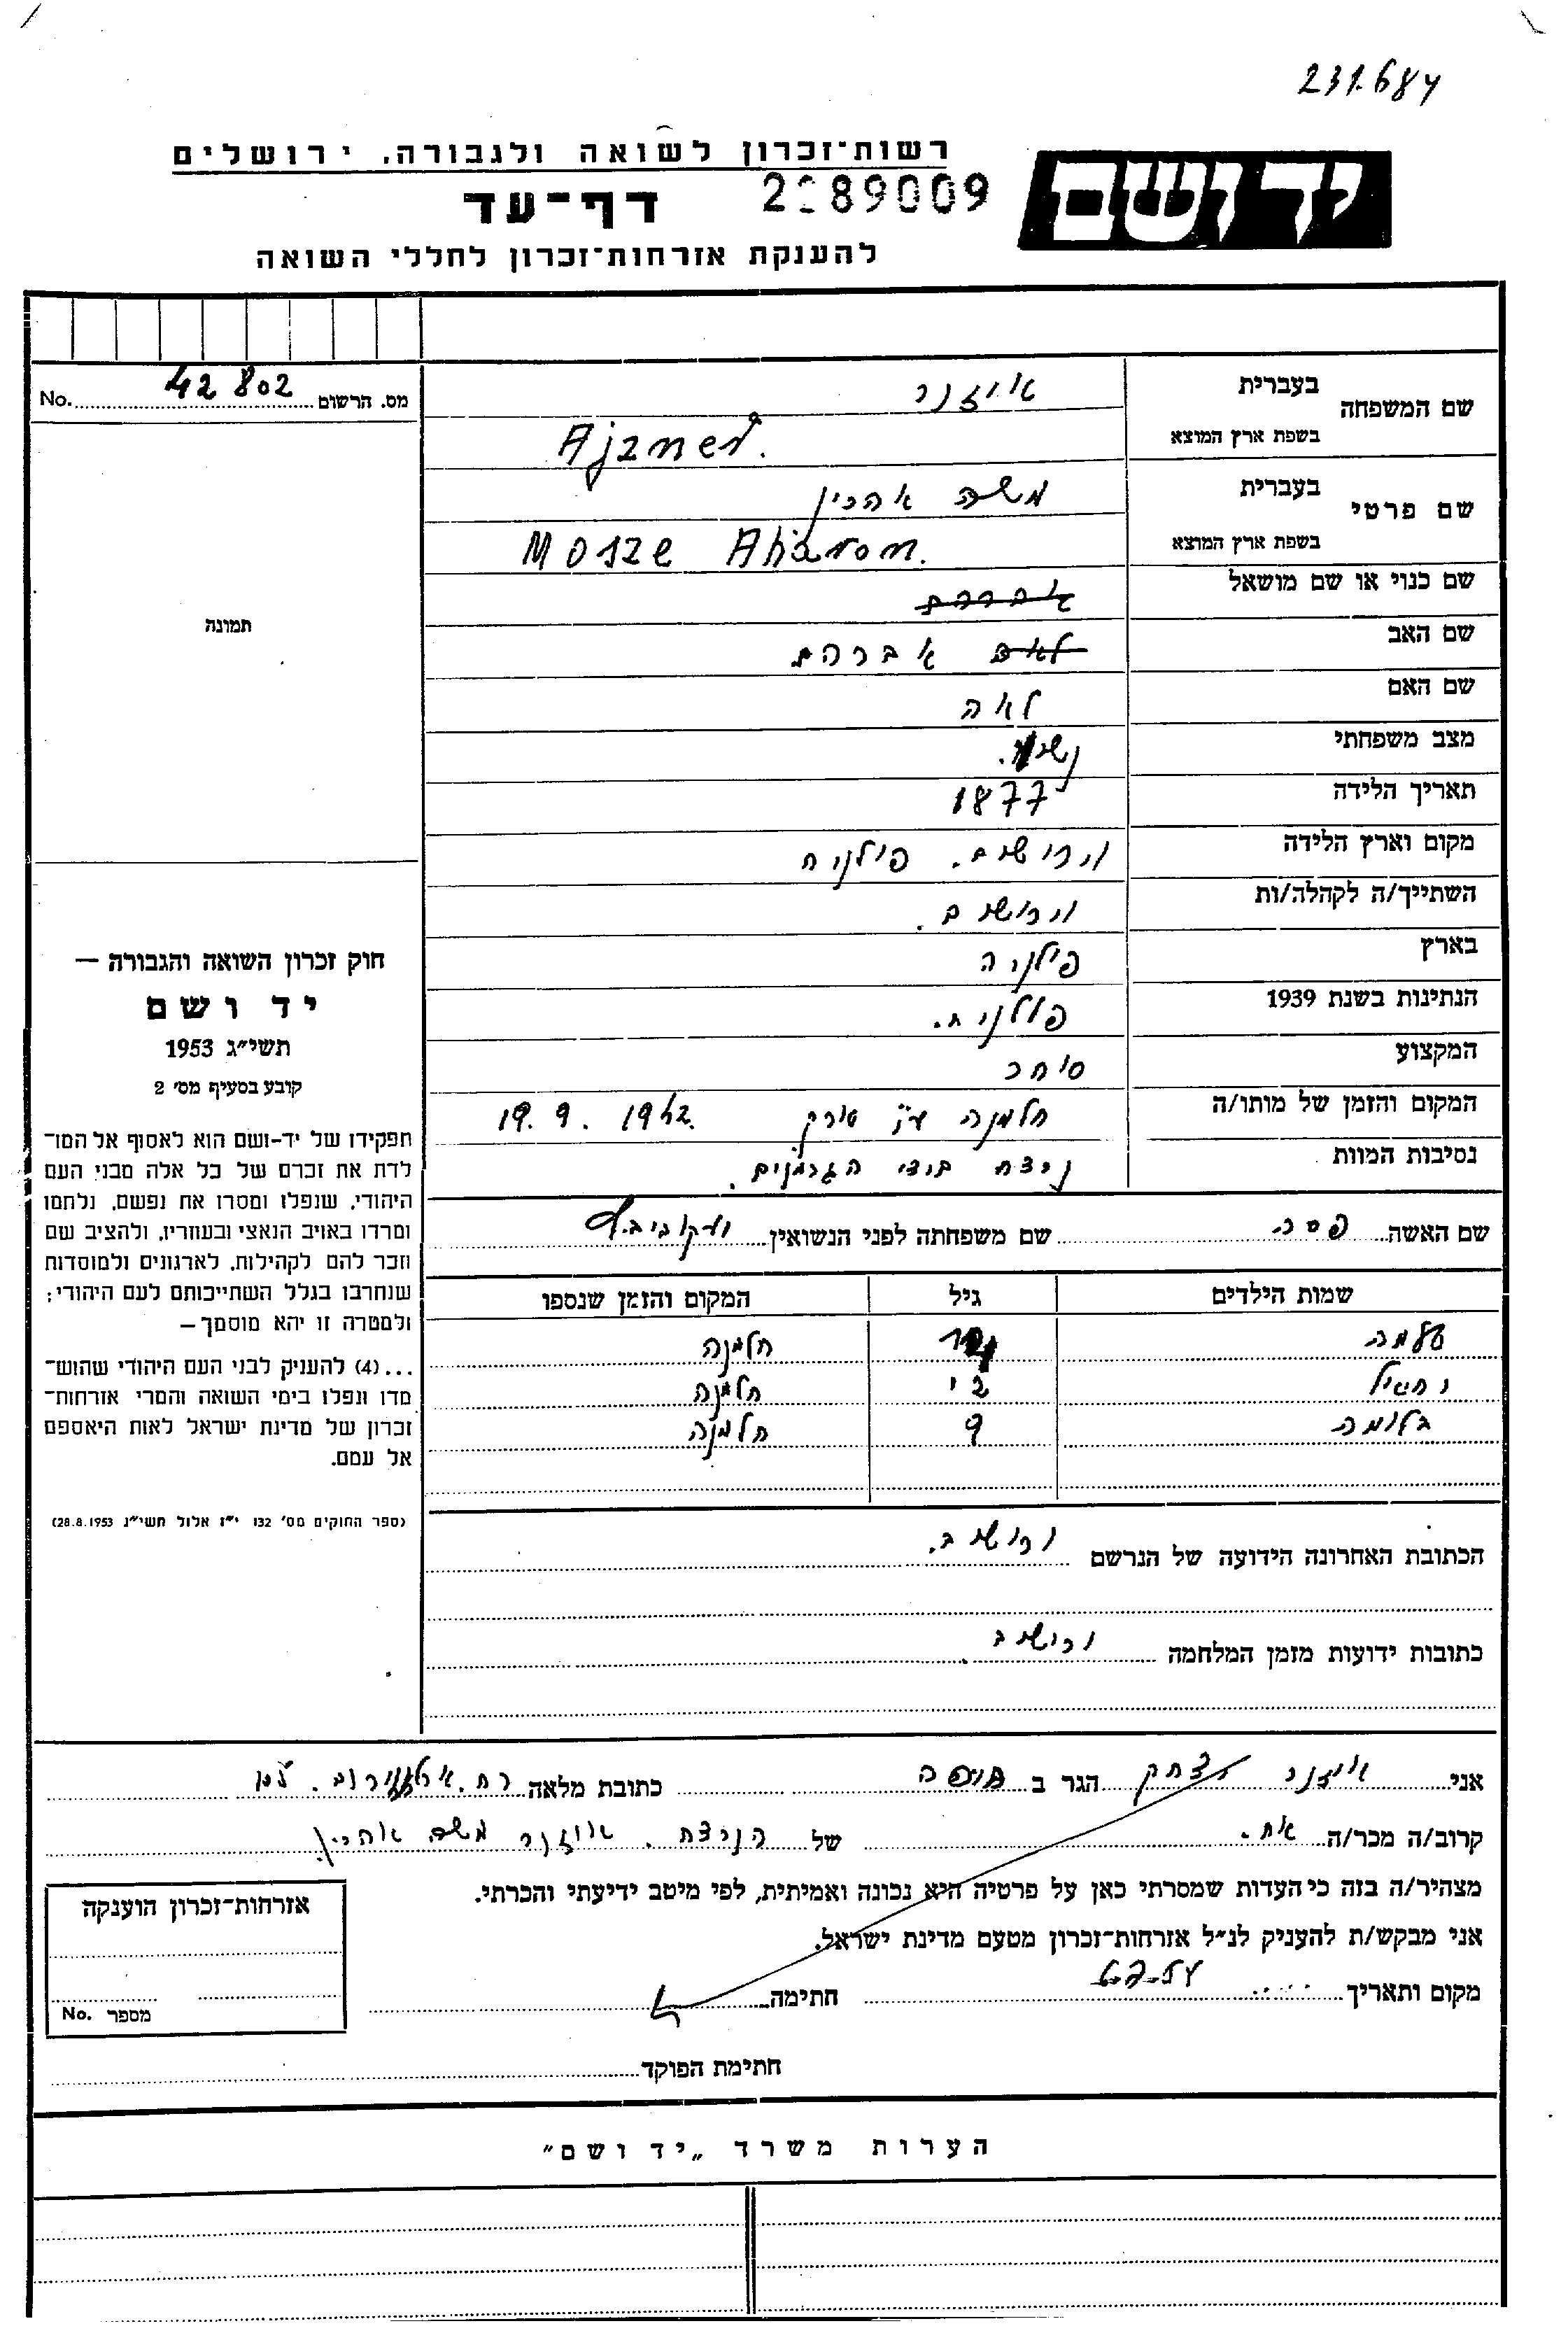 231.684
רשות־זכרון לשואה ולגבורה, ירושלים
יד ושם
דף־עד
2 89009
להענקת אזרחות־זכרון לחללי השואה
מס. הרשום 42802 No.
שם המשפחה
בעברית איזנר
בשפת ארץ המוצא Ajzner.
שם פרטי
בעברית משה אהרון
בשפת ארץ המוצא Mosze Aharon.
שם כנוי או שם מושאל אברהם
שם האב אברהם
שם האם לאה
מצב משפחתי נשוי.
תאריך הלידה 1877
מקום וארץ הלידה פולניה
השתייך/ה לקהלה/ות
בארץ פולניה
הנתינות בשנת 1939 פולנית.
המקצוע סוחר
המקום והזמן של מותו/ה חלמנה ע"י 19.9.1942
נסיבות המוות נרצח בידי הגרמנים.
תמונה
חוק זכרון השואה והגבורה —
יד ושם
תשי״ג 1953
קובע בסעיף מס׳ 2
תפקידו של יד־ושם הוא לאסוף אל המו־
לדת את זכרם של כל אלה מבני העם
היהודי, שנפלו ומסרו את נפשם, נלחמו
ומרדו באויב הנאצי ובעוזריו, ולהציב שם
וזכר להם לקהילות, לארגונים ולמוסדות
שנחרבו בגלל השתייכותם לעם היהודי;
ולמטרה זו יהא מוסמך —
...(4) להעניק לבני העם היהודי שהוש־
מדו ונפלו בימי השואה והמרי אזרחות־
זכרון של מדינת ישראל לאות היאספם
אל עמם.
(ספר החוקים מס׳ 132 י״ז אלול תשי״ג 28.8.1953)
שם האשה שם משפחתה לפני הנשואין
שמות הילדים גיל המקום והזמן שנספו
חלמנה
רחל 12 חלמנה
בלומה 9 חלמנה
הכתובת האחרונה הידועה של הנרשם
כתובות ידועות מזמן המלחמה
אני איזנר יצחק הגר ב חיפה כתובת מלאה רח.
קרוב/ה מכר/ה אח. של הנרצח. איזנר משה אהרון.
מצהיר/ה בזה כי העדות שמסרתי כאן על פרטיה היא נכונה ואמיתית, לפי מיטב ידיעתי והכרתי.
אני מבקש/ת להעניק לנ״ל אזרחות־זכרון מטעם מדינת ישראל.
מקום ותאריך חתימה
אזרחות־זכרון הוענקה
מספר No.
חתימת הפוקד
הערות משרד „יד ושם״